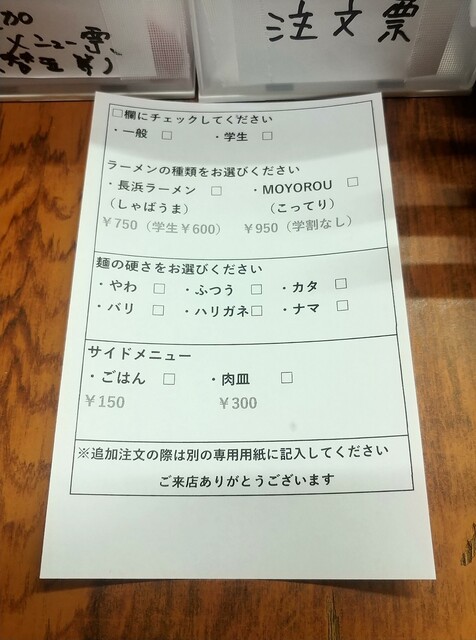 加
メニュー票
注文票
□欄にチェックしてください
・一般 □ ・学生 □
ラーメンの種類をお選びください
・長浜ラーメン □ ・MOYOROU □
（しゃばうま） （こってり）
￥750（学生￥600） ￥950（学割なし）
麺の硬さをお選びください
・やわ □ ・ふつう □ ・カタ □
・バリ □ ・ハリガネ□ ・ナマ □
サイドメニュー
・ごはん □ ・肉皿 □
￥150 ￥300
※追加注文の際は別の専用用紙に記入してください
ご来店ありがとうございます